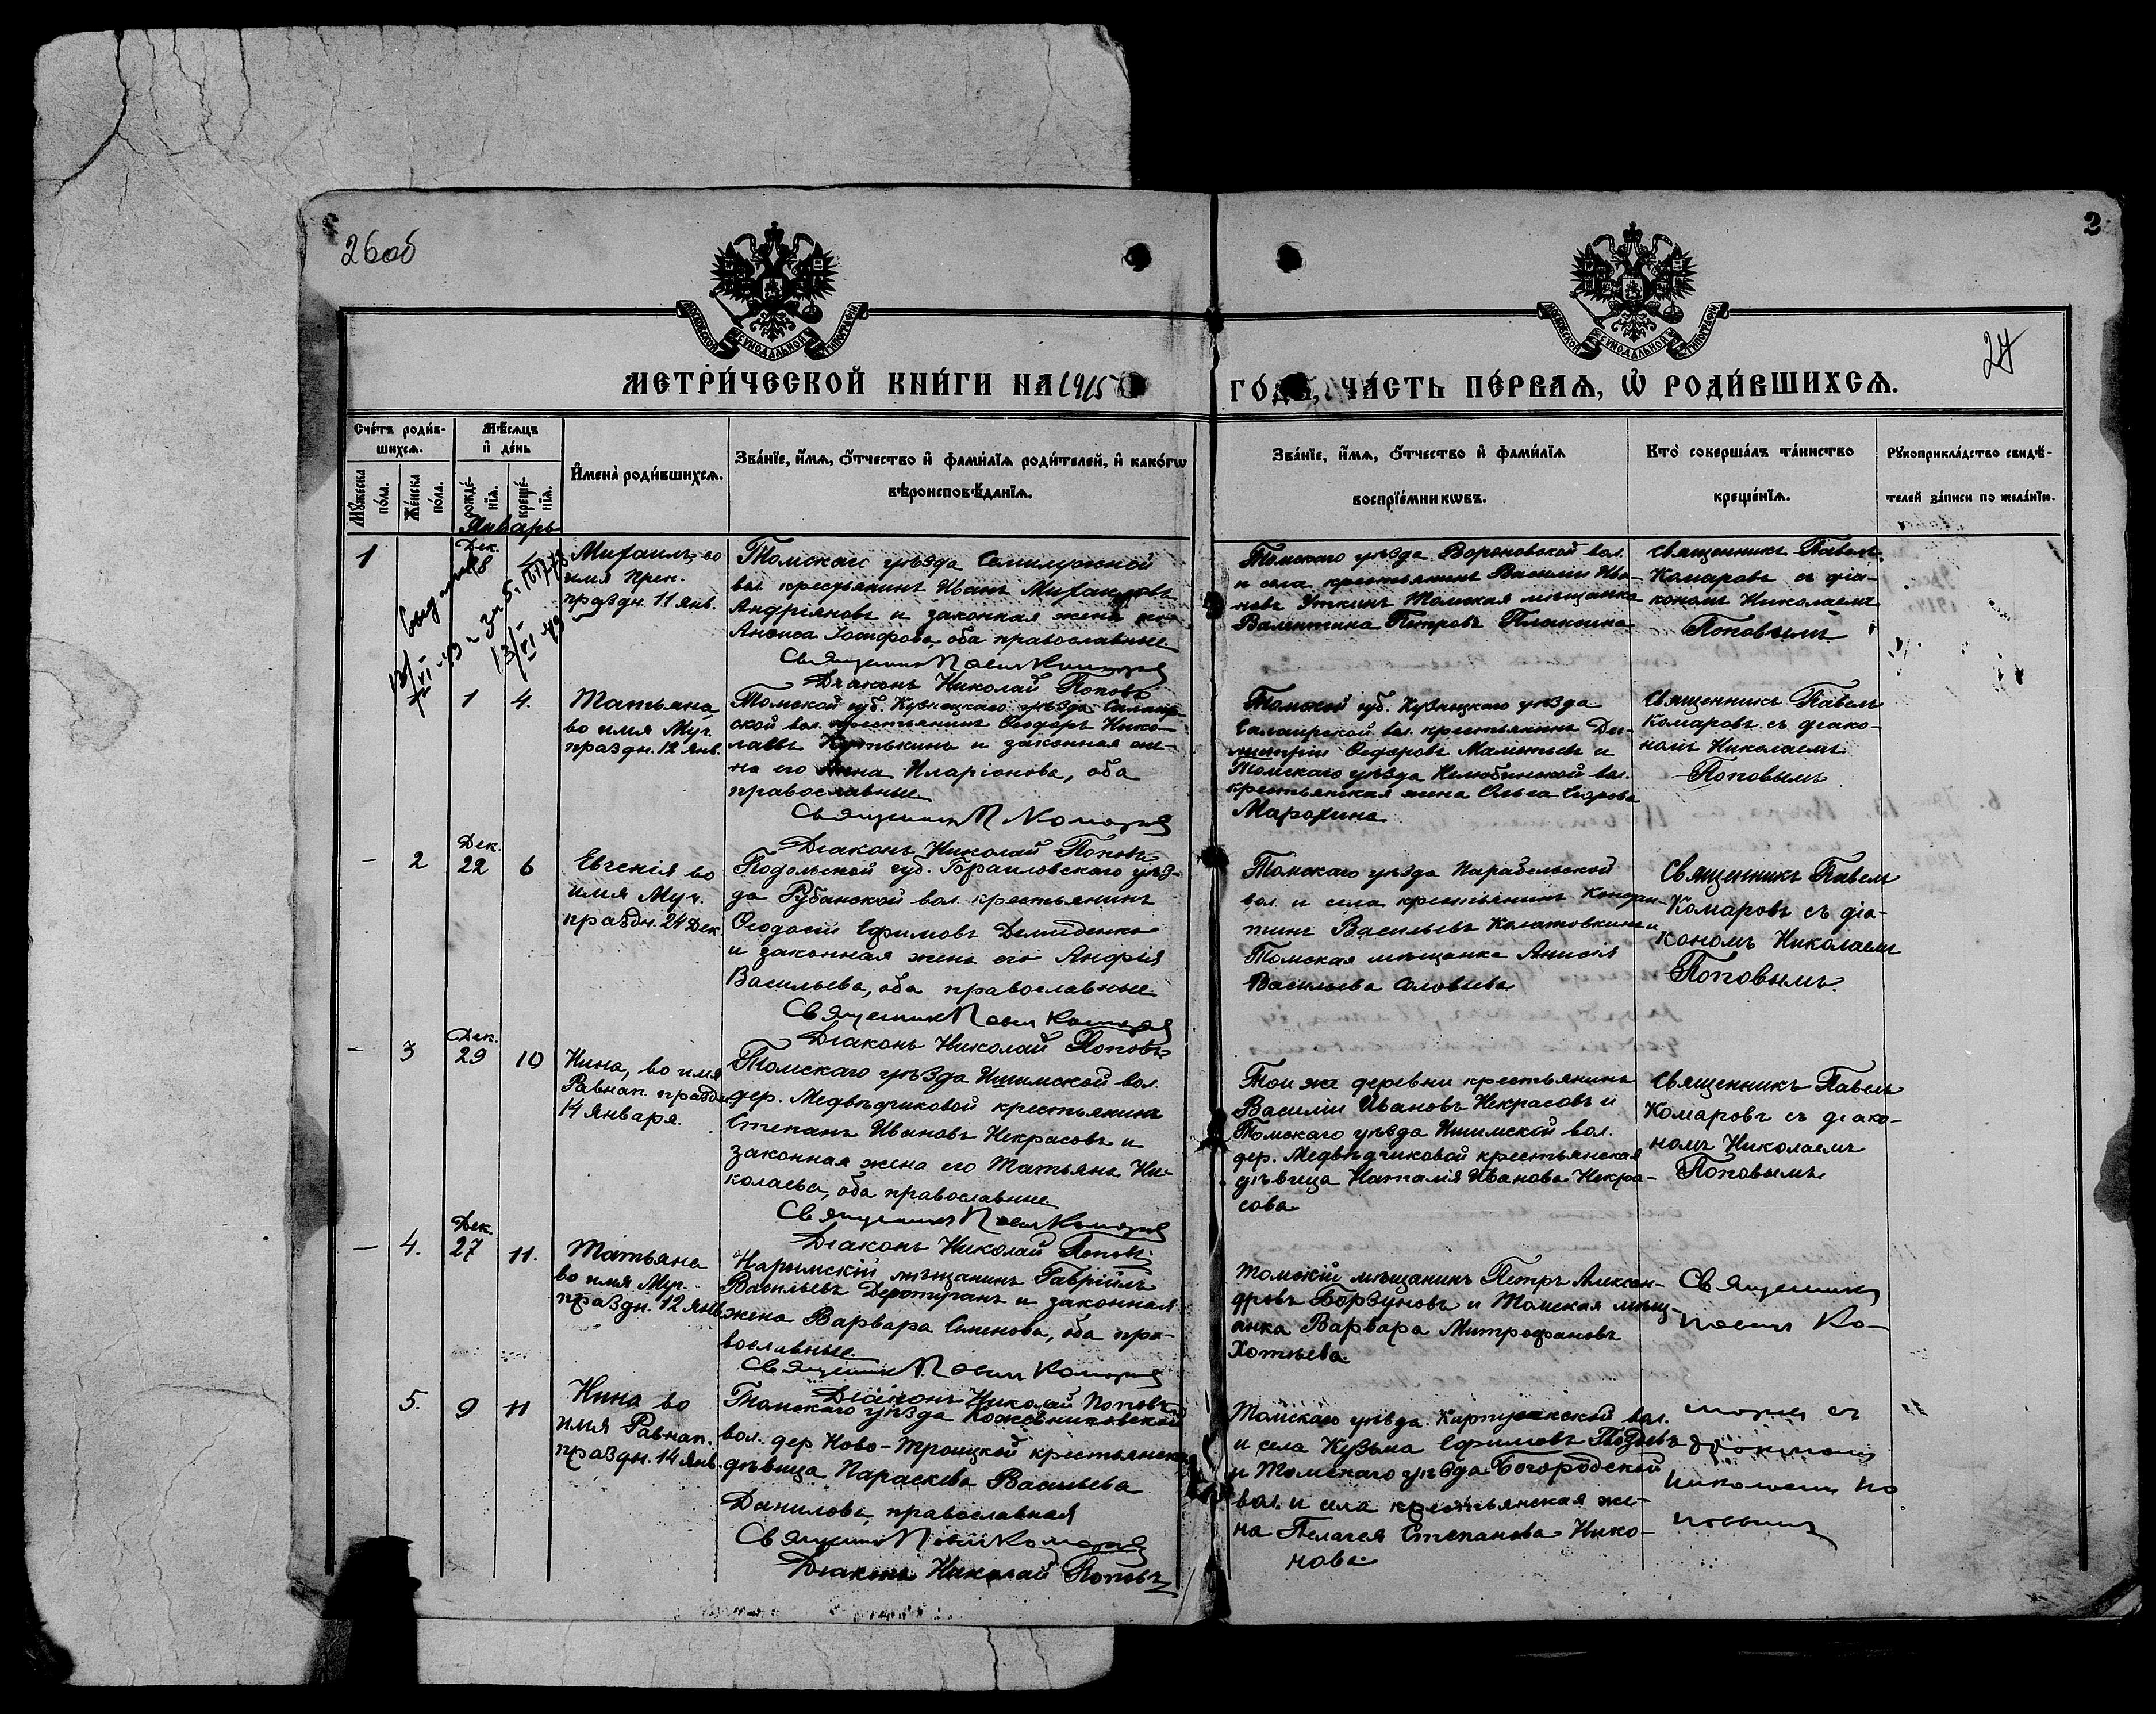 26об
2
27
МОСКОВСКОЙ СѴНОДАЛЬНОЙ ТИПОГРАФІИ
МОСКОВСКОЙ СѴНОДАЛЬНОЙ ТИПОГРАФІИ
МЕТРИ́ЧЕСКОЙ КНИ́ГИ НА 1915 ГО́ДЪ, ЧА́СТЬ ПЕ́РВАѦ, Ѡ РОДИ́ВШИХСѦ.
Сче́тъ роди́в-
шихсѧ.
Мѣ́сѧцъ
и҆ де́нь
Мꙋ́жеска по́ла.
Же́нска по́ла.
рожде́-
нїѧ.
креще́-
нїѧ.
И҆мена̀ роди́вшихсѧ.
Зва́нїе, и҆́мѧ, ѻ҆́тчество и҆ фами́лїѧ роди́телей, и҆ како́гѡ
вѣроисповѣ́данїѧ.
Зва́нїе, и҆́мѧ, ѻ҆́тчество и҆ фами́лїѧ
воспрїе́мникѡвъ.
Кто̀ соверша́лъ та́инство
креще́нїѧ.
Рꙋкоприкла́дство свидѣ́-
телей за́писи по жела́нїю.
Январь
1
Дек.
18
1
Михаилъ, во
имя преп.
праздн. 11 Янв.
Томскаго уѣзда Семилужной
вол. крестьянинъ Иванъ Михайловъ
Андріяновъ и законная жена его
Анфиса Іосифова, оба православные
Священникъ Павелъ Комаровъ
Діаконъ Николай Поповъ
Томскаго уѣзда Вороновской вол.
и села крестьянинъ Василій Ива-
новъ Уткинъ Томская мѣщанка
Валентина Петрова
Священникъ Павелъ
Комаровъ съ діа-
кономъ Николаемъ
Поповымъ
1
4.
Татьяна
во имя Муч.
праздн. 12 Янв.
Томской губ. Кузнецкаго уѣзда Салаир-
ской вол. крестьянинъ Ѳеодоръ Нико-
лаевъ и законная же-
на его Анна Иларіонова, оба
православные
Священникъ П Комаровъ
Діаконъ Николай Поповъ
Томской губ. Кузнецкаго уѣзда
Салаирской вол. крестьянинъ Ди-
митрій Ѳедоровъ и
Томскаго уѣзда Нелюбинской вол.
крестьянская жена Ольга Егорова
Марохина
Священникъ Павелъ
Комаровъ съ діако-
номъ Николаемъ
Поповымъ
–
2
Дек.
22
6
Евгенія во
имя Муч.
праздн. 24 Дек.
Подольской губ. Браиловскаго уѣз-
да Рубанской вол. крестьянинъ
Ѳеодосій Ефимовъ Демиденко
и законная жена его
Васильева, оба православные
Священникъ Павелъ Комаровъ
Діаконъ Николай Поповъ
Томскаго уѣзда Парабельской
вол. и села крестьянинъ
Васильевъ и
Томская мѣщанка Анисія
Васильева Соловьева
Священникъ Павелъ
Комаровъ съ діа-
кономъ Николаемъ
Поповымъ
–
3
Дек.
29
10
Нина, во имя
Равнап. праздн.
14 Января.
Томскаго уѣзда Ишимской вол.
дер. Медвѣдчиковой крестьянинъ
Степанъ Ивановъ Некрасовъ и
законная жена его Татьяна Ни-
колаева, оба православные
Священникъ Павелъ Комаровъ
Діаконъ Николай Поповъ
Той же деревни крестьянинъ
Василій Ивановъ Некрасовъ и
Томскаго уѣзда Ишимской вол.
дер. Медвѣдчиковой крестьянская
дѣвица Наталія Иванова Некра-
сова
Священникъ Павелъ
Комаровъ съ діако-
номъ Николаемъ
Поповымъ
–
4.
Дек.
27
11.
Татьяна
во имя Муч.
праздн. 12 Янв.
Нарымскій мѣщанинъ Гавріилъ
Васильевъ и законная
жена Варвара Семенова, оба пра-
вославные
Священникъ Павелъ Комаровъ
Діаконъ Николай Поповъ
Томскій мѣщанинъ Петръ Алексан-
дровъ Борзуновъ и Томская мѣщ-
анка Варвара Митрофанова
Хотьева
Священникъ
Павелъ Ко-
5.
9
11
Нина во
имя Равнап.
праздн. 14 Янв.
Томскаго уѣзда Кожевниковской
вол. дер Ново-Троицкой крестьянская
дѣвица Параскева Васильева
Данилова, православная
Священникъ Павелъ Комаровъ
Діаконъ Николай Поповъ
Томскаго уѣзда вол.
и села Кузьма Ефимовъ
и Томскаго уѣзда Богородской
вол. и села крестьянская же-
на Пелагея Степанова Нико-
нова
маровъ съ
діакономъ
Николаемъ По-
повымъ